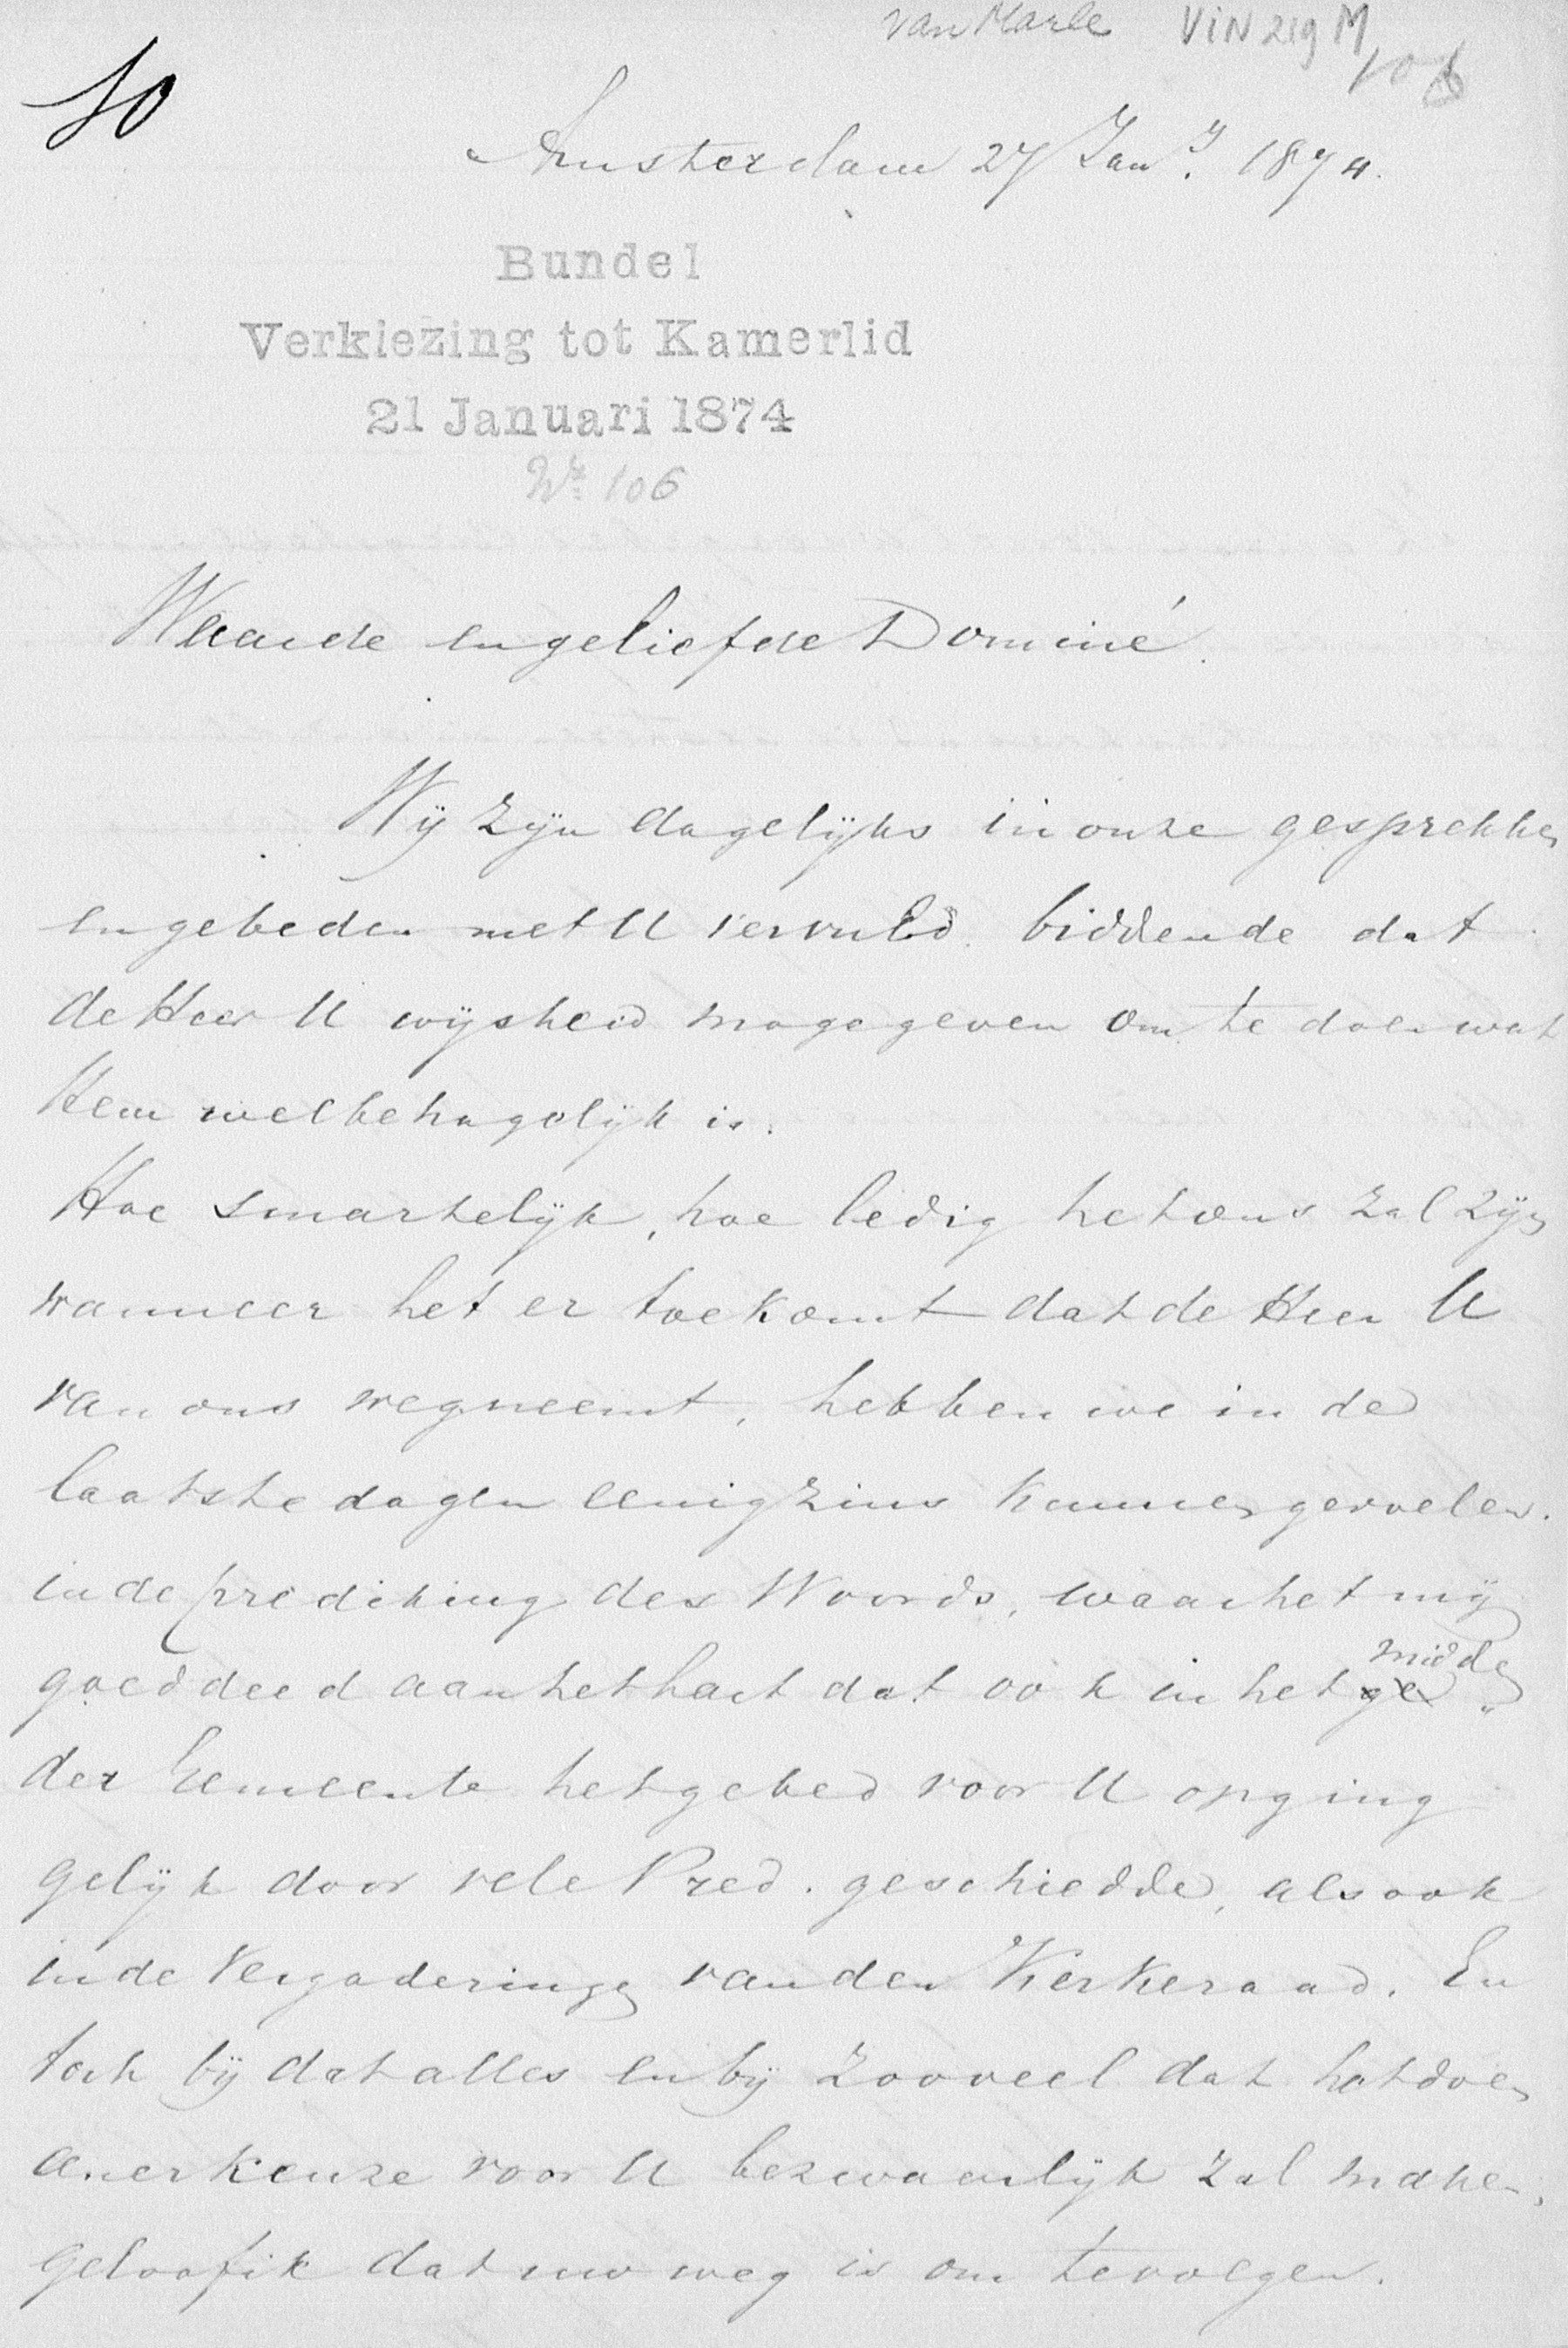 van Marle VIN 219 M
106
10
Amsterdam 27 Jany. 1874.
Bundel
Verkiezing tot Kamerlid
21 Januari 1874
No 106
Waarde en geliefde Dominé.
Wij zijn dagelijks in onze gesprekken
en gebeden met U vervuld. biddende dat
de Heer U wijsheid moge geven om te doen wat
Hem welbehagelijk is.
Hoe smartelijk, hoe ledig het ons zal zijn
wanneer het er toe komt dat de Heer U
van ons wegneemt, hebben we in de
laatste dagen eenigzins kunnen gevoelen.
in de prediking des Woords, waar het mij
goed deed aan het hart dat ook in het ge midden
der Gemeente het gebed voor U opging
gelijk door vele Pred. geschiedde, als ook
in de Vergaderingen van den Kerkeraad. En
toch bij dat alles en bij zooveel dat het doen
eener keuze voor U bezwaarlijk zal maken,
geloof ik dat uw weg is om te volgen.